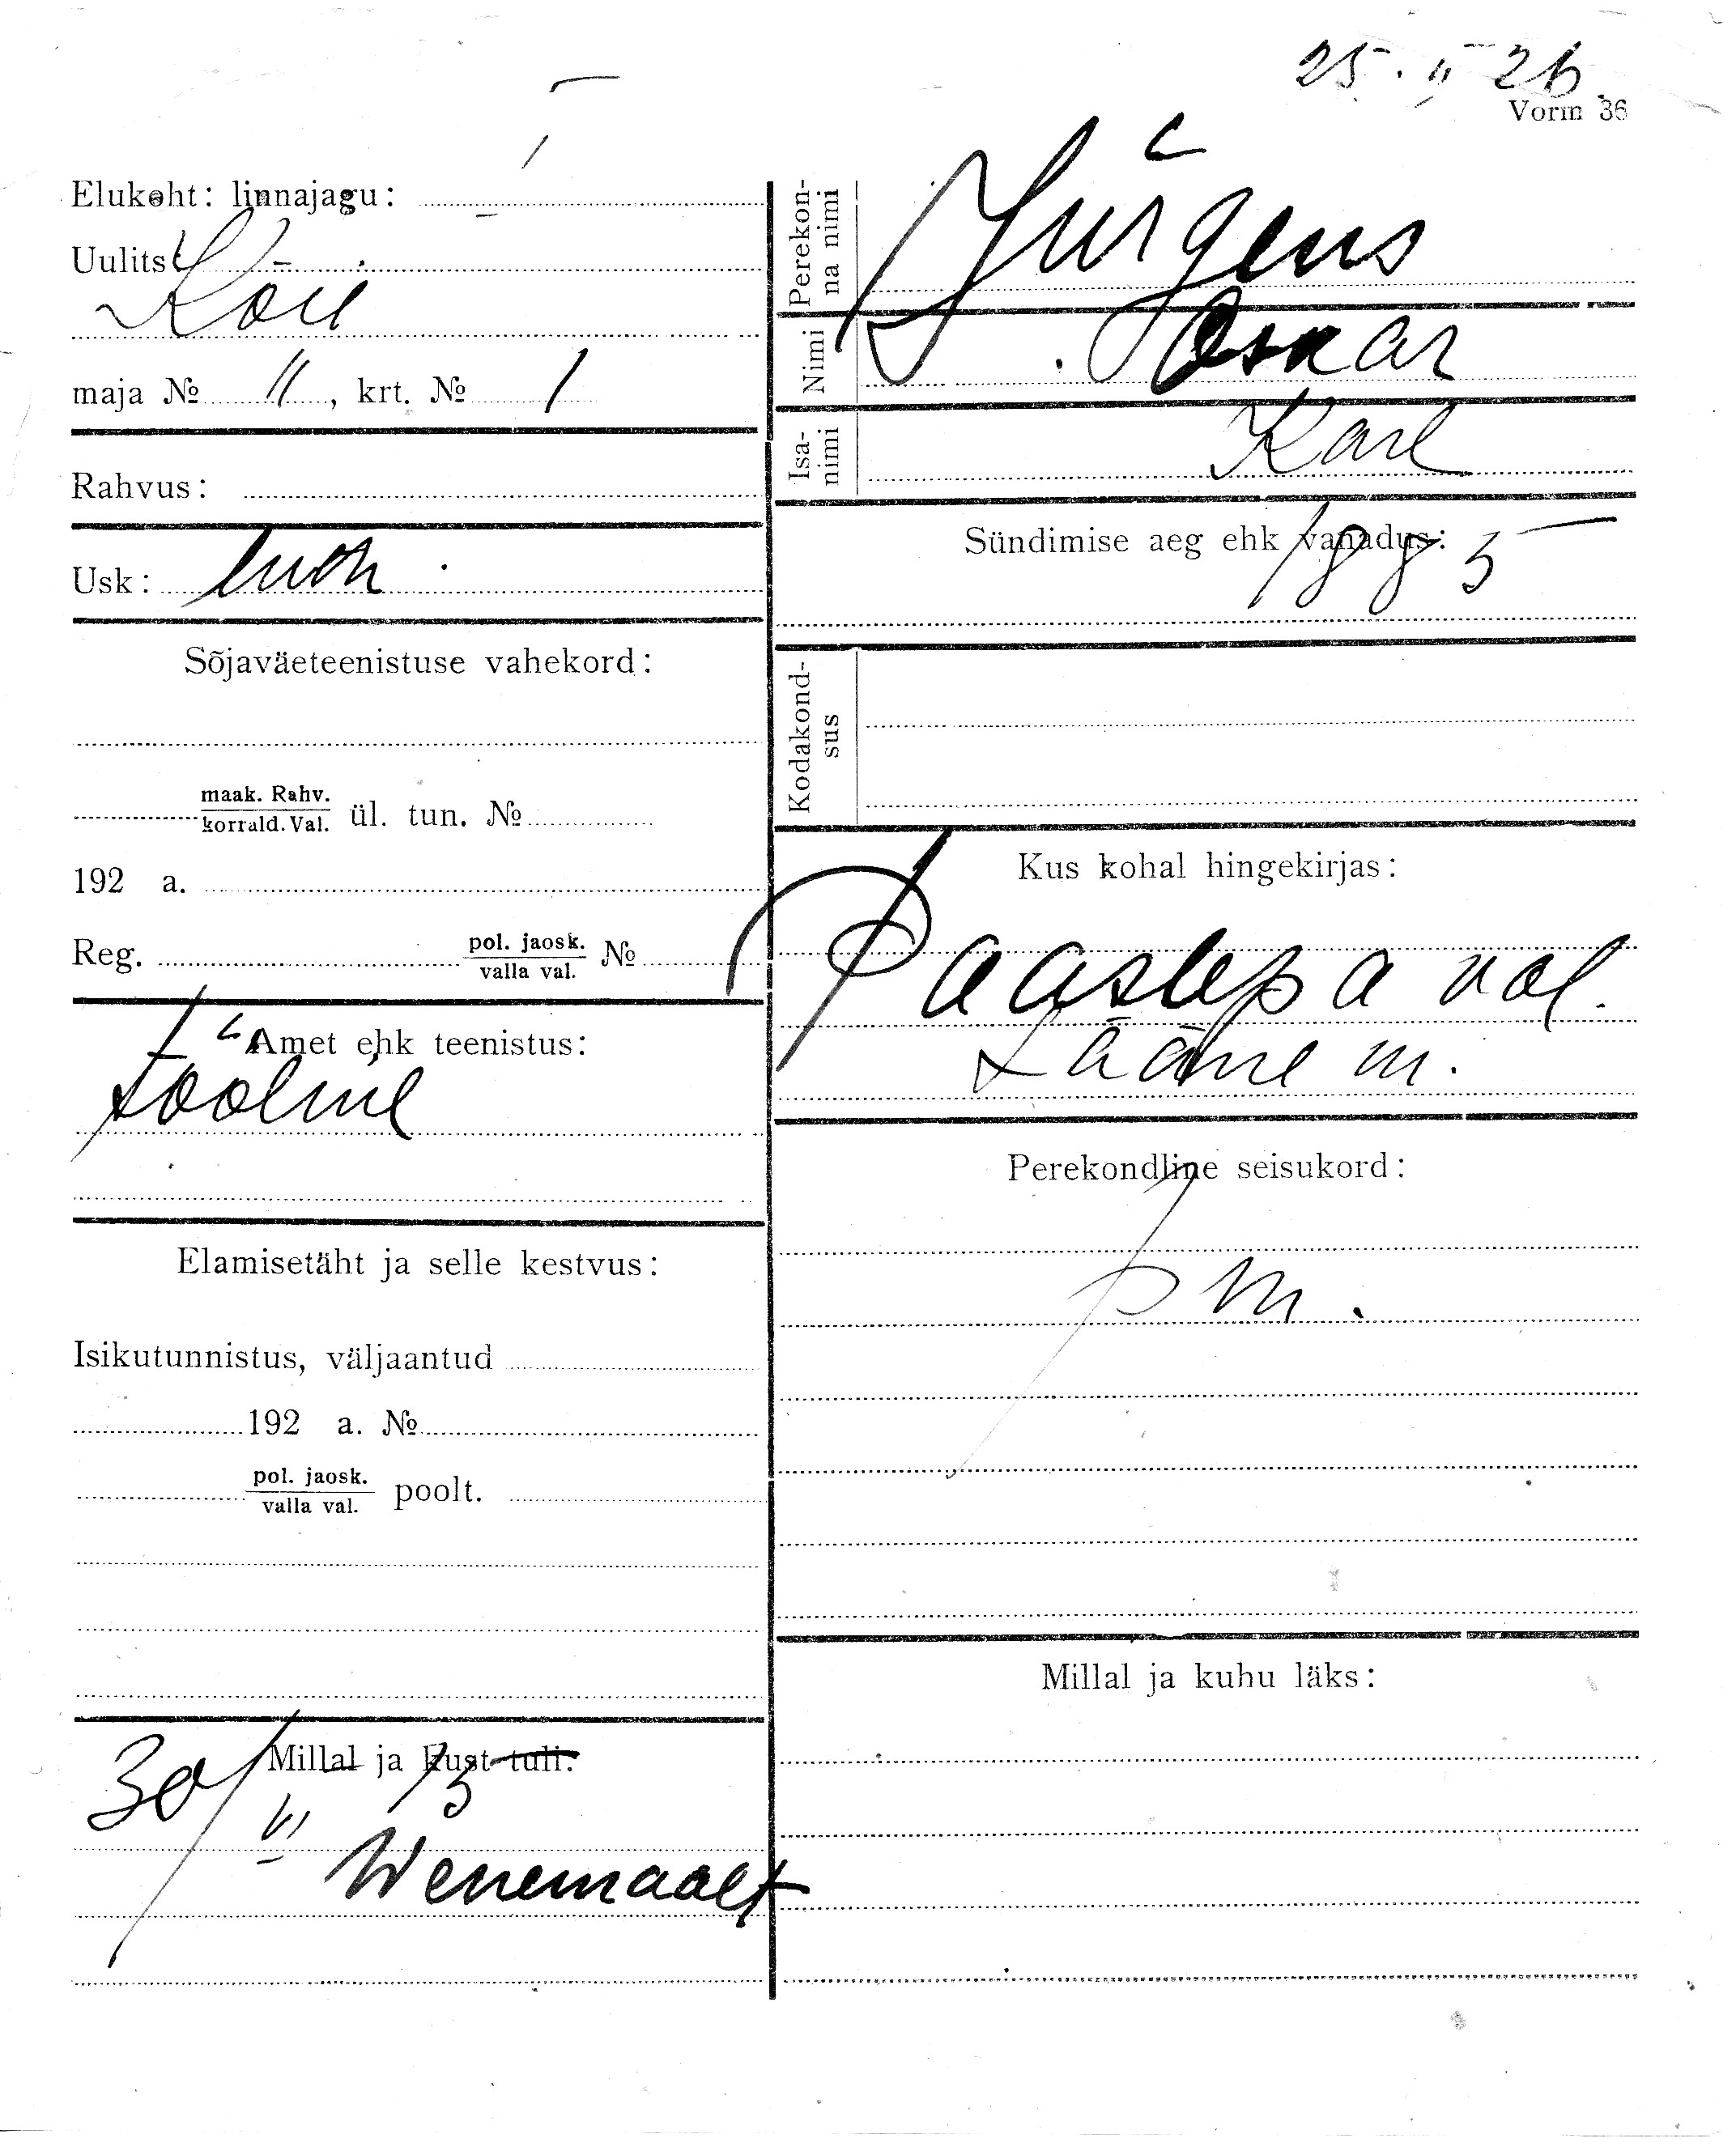 25. II 26.
Vorm 36
Elukoht: linnajagu:
Uulits:
Köie
maja № 11, krt. № 1
Rahvus:
Usk: luth.
Sõjaväeteenistuse vahekord:
maak. Rahv.
korrald. Val. ül. tun. №
192 a.
Reg. pol. jaosk. №
valla val.
Amet ehk teenistus:
tööline
Elamisetäht ja selle kestvus:
Isikutunnistus, väljaantud
192 a. №
pol. jaosk.
valla val. poolt.
Millal ja kust tuli:
30/VI 15
Wenemaalt
Perekon-
na nimi
Jürgens
Nimi
Oskar
Isa-
nimi
Karl
Sündimise aeg ehk vanadus:
1885
Kodakond-
sus
Kus kohal hingekirjas:
Paaslepa val.
Lääne m.
Perekondline seisukord:
Millal ja kuhu läks: